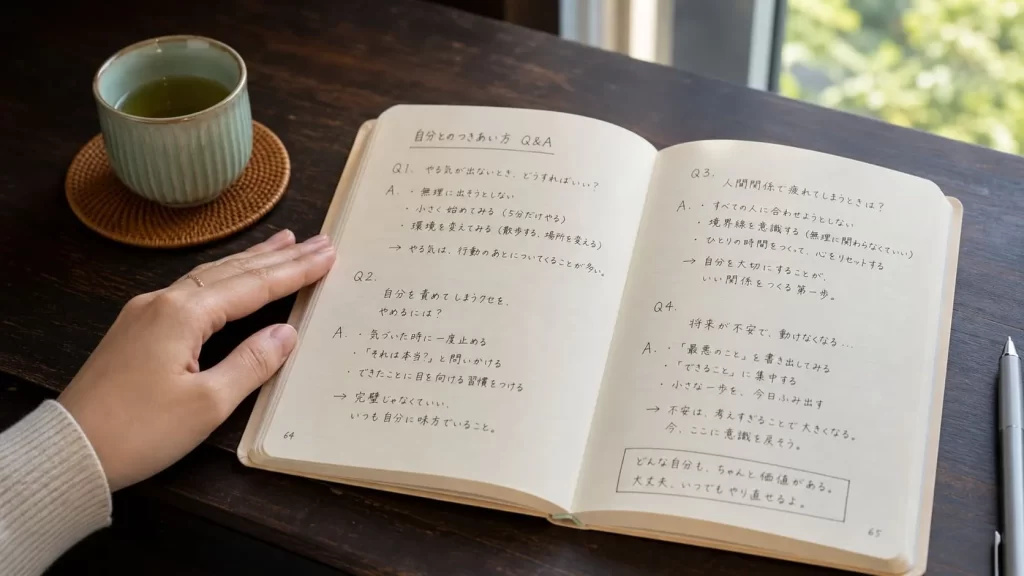 自分とのつきあい方 Q&A
Q1. やる気が出ないとき、どうすればいい?
A. ・無理に出そうとしない
・小さく始めてみる (5分だけやる)
・環境を変えてみる (散歩する、場所を変える)
→ やる気は、行動のあとについてくることが多い。
Q2.
自分を責めてしまうクセを、
やめるには?
A. ・気づいた時に一度止める
・「それは本当?」と問いかける
・できたことに目を向ける習慣をつける
→ 完璧じゃなくていい、
いつも自分に味方でいること。
64
Q3.
人間関係で疲れてしまうときは?
A. ・すべての人に合わせようとしない
・境界線を意識する (無理に関わらなくていい)
・ひとりの時間をつくって、心をリセットする
→ 自分を大切にすることが、
いい関係をつくる第一歩。
Q4
将来が不安で、動けなくなる...
A. ・「最悪のこと」を書き出してみる
・「できること」に集中する
・小さな一歩を、今日ふみ出す
→ 不安は、考えすぎることで大きくなる。
今、ここに意識を戻そう。
どんな自分も、ちゃんと価値がある。
大丈夫、いつでもやり直せるよ。
65